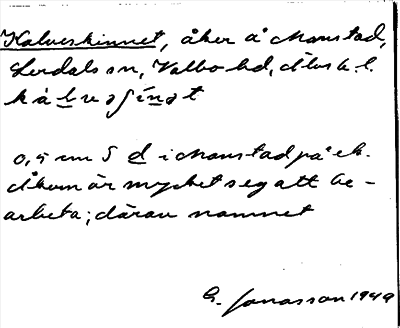 Kalveskinnet, åker å Monstad,
Lerdals sn, Valbo hd, Älvsb. l.
kálvəʃínət
0,5 cm S d i Monstad på ek.
Åkern är mycket seg att be-
arbeta; därav namnet
G. Jonasson 1949